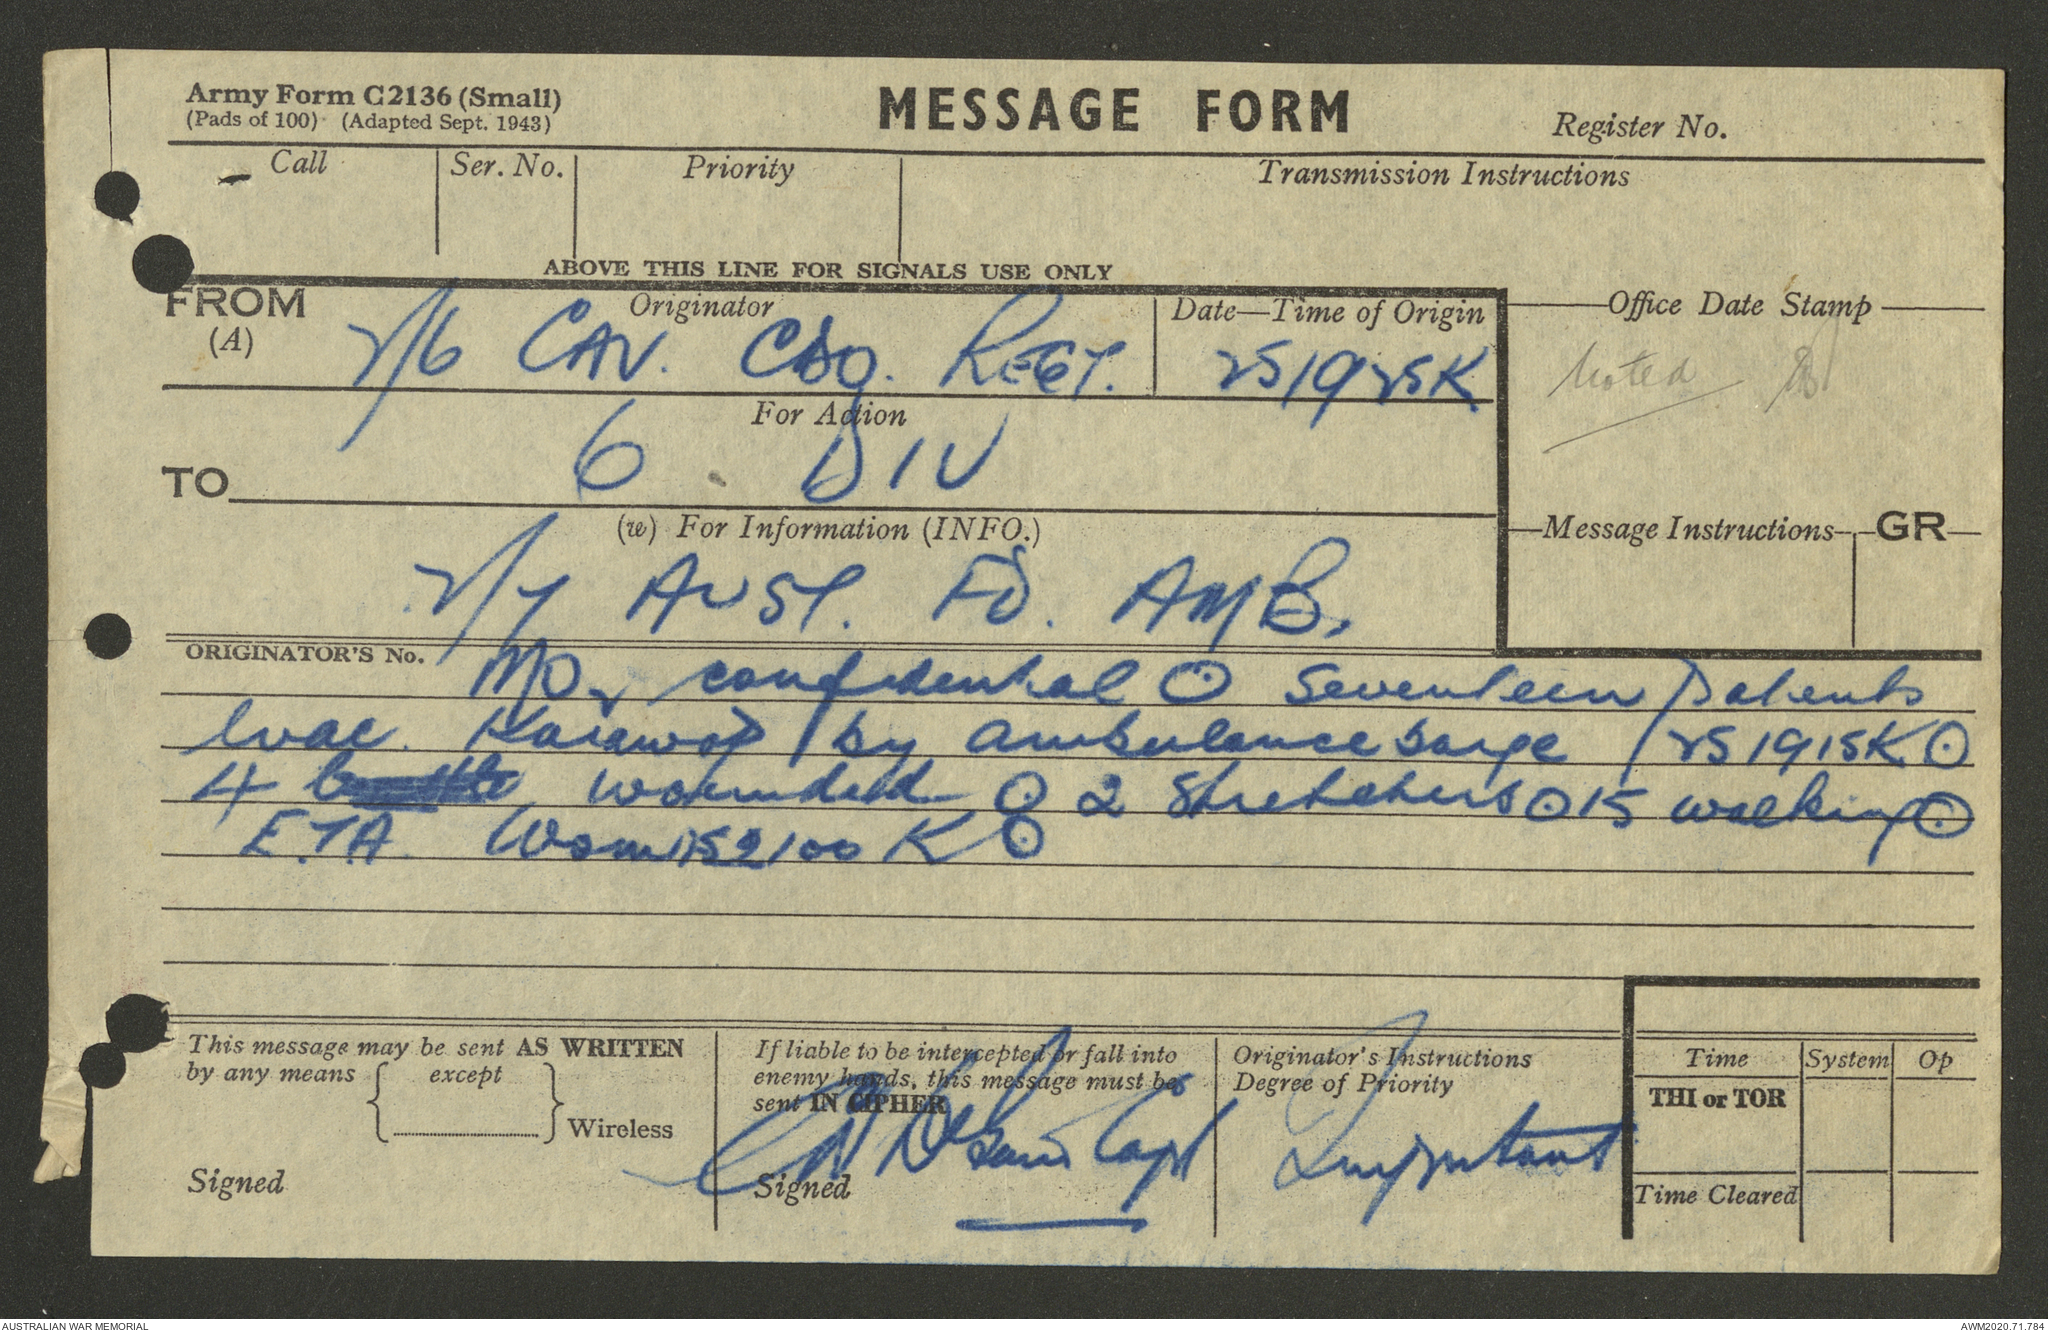 Army Form C2136 (Small)
(Pads of 100) (Adapted Sept. 1943)
MESSAGE FORM
Register No.
Call Ser. No. Priority Transmission Instructions
ABOVE THIS LINE FOR SIGNALS USE ONLY
FROM (A) Originator Date—Time of Origin Office Date Stamp
2/6 CAV. CDO. REGT. 251925K
Noted
For Action
TO 6 DIV
(w) For Information (INFO.) Message Instructions GR
2/7 AUST. FD. AMB.
ORIGINATOR'S No.
confidential ⊙ Seventeen patients
evac. Karawop by ambulance barge 251915K ⊙
4 wounded ⊙ 2 stretchers ⊙ 15 walking ⊙
E.T.A. Wom 252100K ⊙
This message may be sent AS WRITTEN
by any means except
Wireless
Signed
If liable to be intercepted or fall into
enemy hands, this message must be
sent IN CIPHER
Capt
Signed
Originator's Instructions
Degree of Priority
Important
Time System Op
THI or TOR
Time Cleared
AUSTRALIAN WAR MEMORIAL
AWM2020.71.784